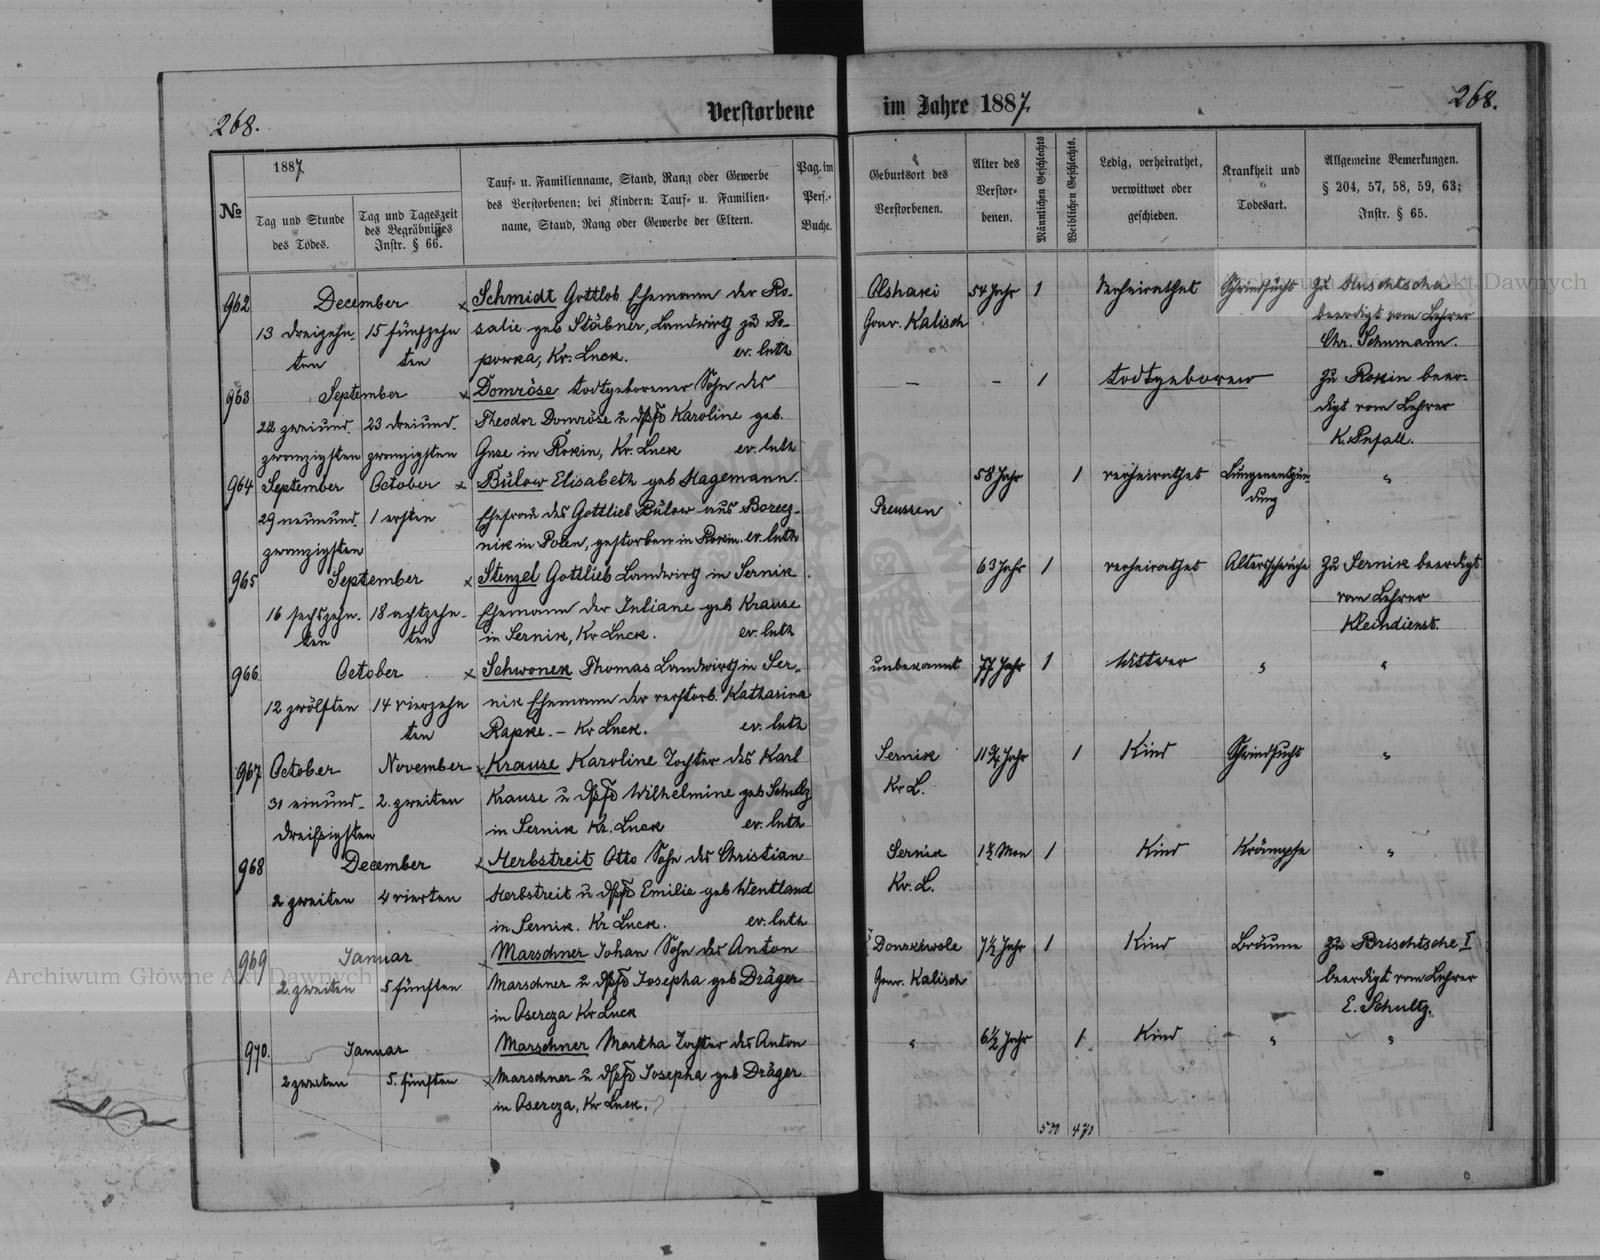 268.
Verstorbene
im Jahre 1887.
268.
№
1887
Tag und Stunde
des Todes.
Tag und Tageszeit
des Begräbnisses
Instr. § 66.
Tauf- u. Familienname, Stand, Rang oder Gewerbe
des Verstorbenen; bei Kindern: Tauf- u. Familien-
name, Stand, Rang oder Gewerbe der Eltern.
Pag. im
Pers.-
Buche.
Geburtsort des
Verstorbenen.
Alter des
Verstor-
benen.
Männlichen Geschlechts
Weiblichen Geschlechts.
Ledig, verheirathet,
verwittwet oder
geschieden.
Krankheit und
Todesart.
Allgemeine Bemerkungen.
§ 204, 57, 58, 59, 63;
Instr. § 65.
962
December
13 dreizehn-
ten
15 fünfzehn
ten
Schmidt Gottlob Ehemann der Ro-
salie geb Stübner, Landwirth zu Po-
powka, Kr. Luck. ev. luth
Olshaki
Gouv. Kalisch
54 Jahr
1
Verheirathet
Schwindsucht
beerdigt vom Lehrer
Chr. Schumann.
963
September
22 zweiund-
zwanzigsten
23 dreiund-
zwanzigsten
Domröse todtgeborener Sohn des
Theodor Domröse u Karoline geb.
Guse in Rokin, Kr. Luck ev. luth
–
–
1
todtgeboren
Zu Rokin beer-
digt vom Lehrer
K. Pufall.
964
September
29 neunund-
zwanzigsten
October
1 ersten
Bülow Elisabeth geb Hagemann.
Ehefrau des Gottlieb Bülow aus Borecz-
nik in Polen, gestorben in Rokin. ev. luth
Preussen
58 Jahr
1
verheirathet
Lungenentzün-
dung
"
965
September
16 sechszehn-
ten
18 achtzehn-
ten
Stenzel Gottlieb Landwirth in Sernik
Ehemann der Juliane geb Krause
in Sernik, Kr Luck. ev. luth
63 Jahr
1
verheirathet
Altersschwäche
Zu Sernik beerdigt
vom Lehrer
Kleindienst.
966
October
12 zwölften
14 vierzehn
ten
Schwonek Thomas Landwirth in Ser-
nik Ehemann der verstorb. Katharina
Rapke. – Kr Luck. ev. luth
unbekannt
77 Jahr
1
Wittwer
"
"
967
October
31 einund-
dreißigsten
November
2. zweiten
Krause Karoline Tochter des Karl
Krause u Wilhelmine geb Schultz
in Sernik Kr. Luck ev. luth
Sernik
Kr L.
11 Jahr
1
Kind
Schwindsucht
"
968
December
2 zweiten
4 vierten
Herbstreit Otto Sohn des Christian
Herbstreit u Emilie geb Wentland
in Sernik. Kr Luck. ev. luth
Sernik
Kr. L.
1½ Mon
1
Kind
Krämpfe
"
969
Januar
2. zweiten
5 fünften
Marschner Johan Sohn des Anton
Marschner u Josepha geb Dräger
in Osercza Kr Luck
Gouv. Kalisch
7½ Jahr
1
Kind
Bräune
Zu Brischtsche I
beerdigt vom Lehrer
E. Schultz.
970.
Januar
2 zweiten
5. fünften
Marschner Martha Tochter des Anton
Marschner u Josepha geb Dräger
in Osercza, Kr Luck.
"
6½ Jahr
1
Kind
"
"
500
470
Archiwum Główne Akt Dawnych
Archiwum Główne Akt Dawnych